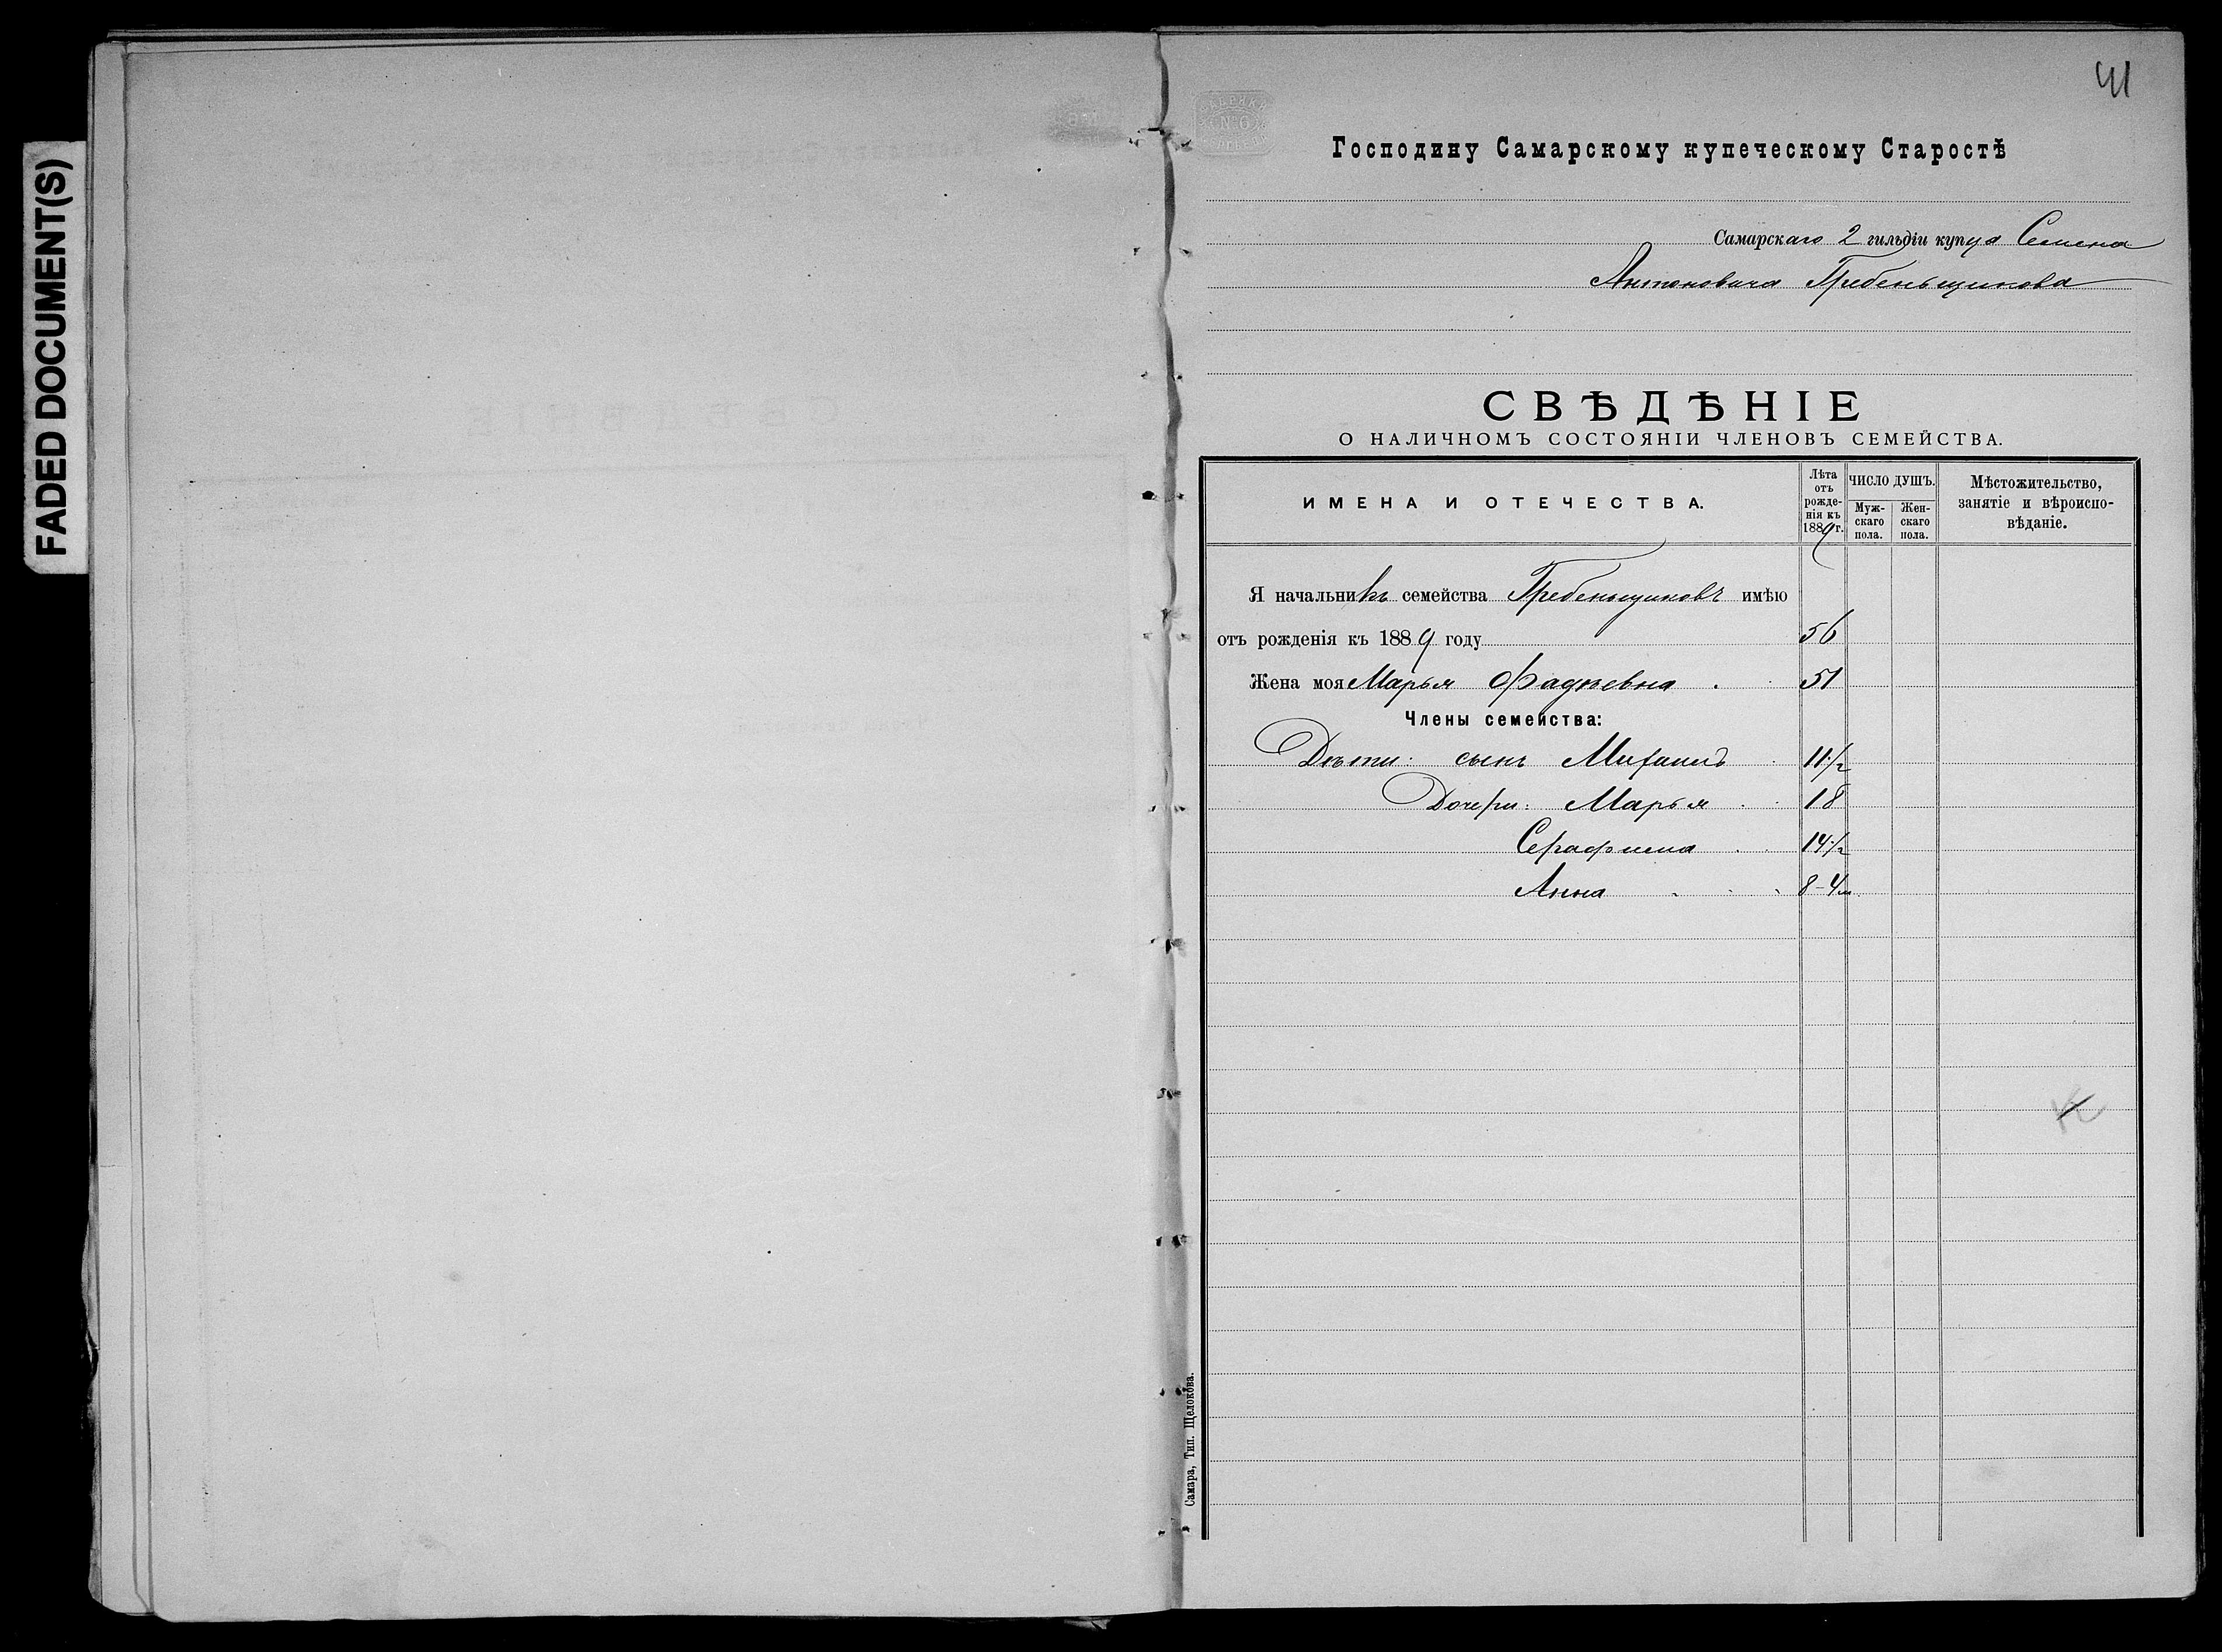 FADED DOCUMENT(S)
41
Господину Самарскому купеческому Старостѣ
Самарскаго 2 гильдіи купца Семена
Антоновича Гребеньщикова
СВѢДѢНІЕ
О НАЛИЧНОМЪ СОСТОЯНІИ ЧЛЕНОВЪ СЕМЕЙСТВА.
ИМЕНА И ОТЕЧЕСТВА.
Лѣта отъ рожденія къ 1889 г.
ЧИСЛО ДУШЪ.
Мужскаго пола.
Женскаго пола.
Мѣстожительство,
занятіе и вѣроиспо-
вѣданіе.
Я начальникъ семейства Гребеньщиковъ имѣю
отъ рожденія къ 1889 году 56
Жена моя Марья Фадѣевна 51
Члены семейства:
Дѣти: сынъ Михаилъ 11 1/2
Дочери: Марья 18
Серафима 14 1/2
Анна 8-4 м
Самара, Тип. Щелокова.